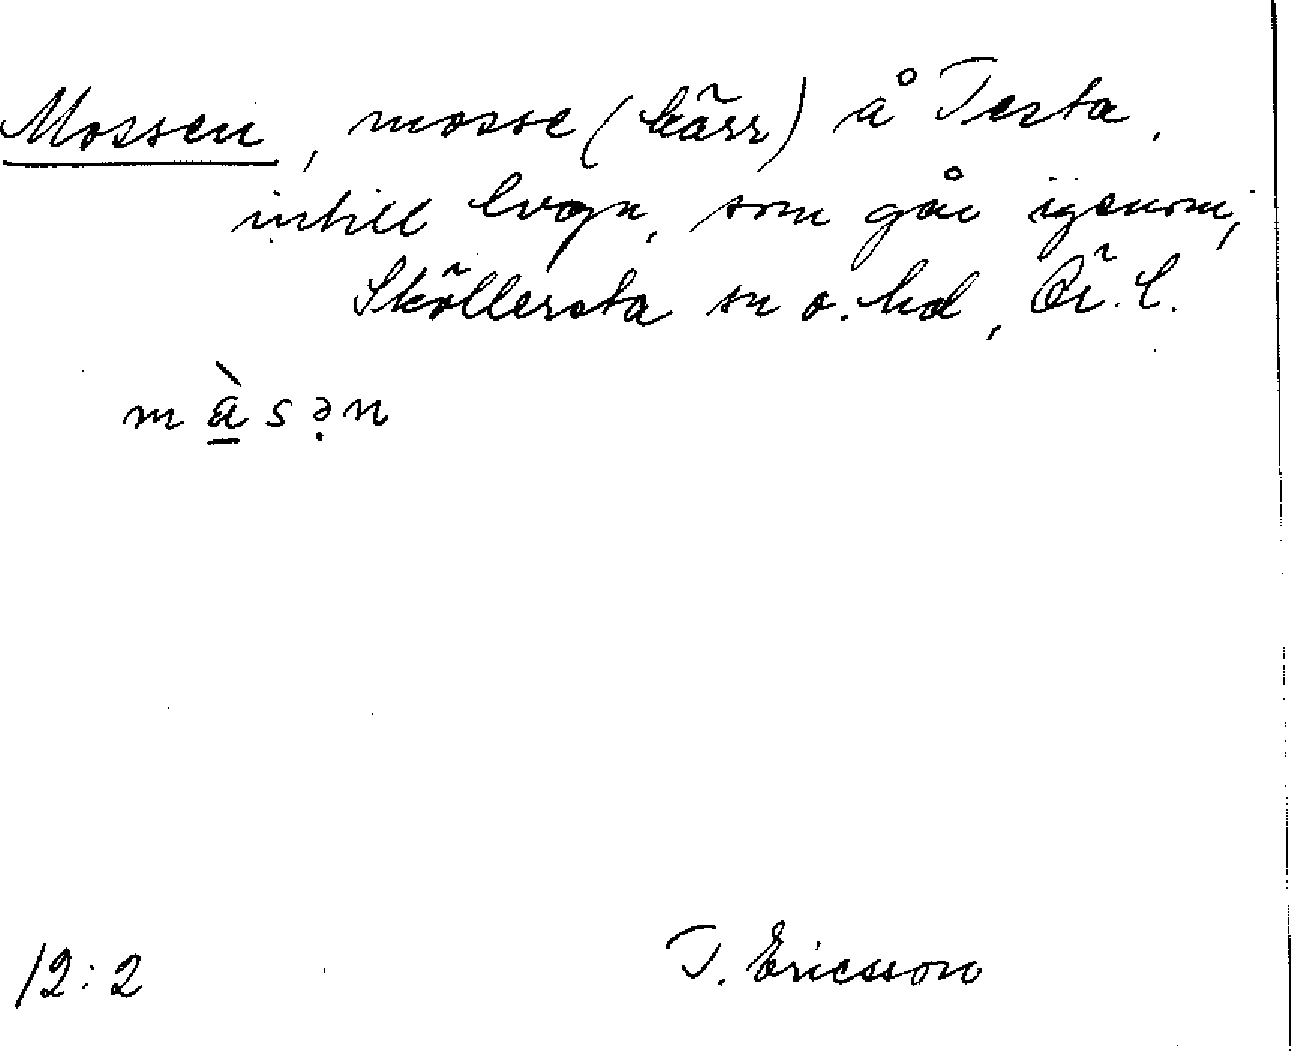 Mossen, mosse (kärr) å Testa,
intill lvgn, som går igenom,
Sköllersta sn o. hd, Ör. l.
m 
12:2
T. Ericsson